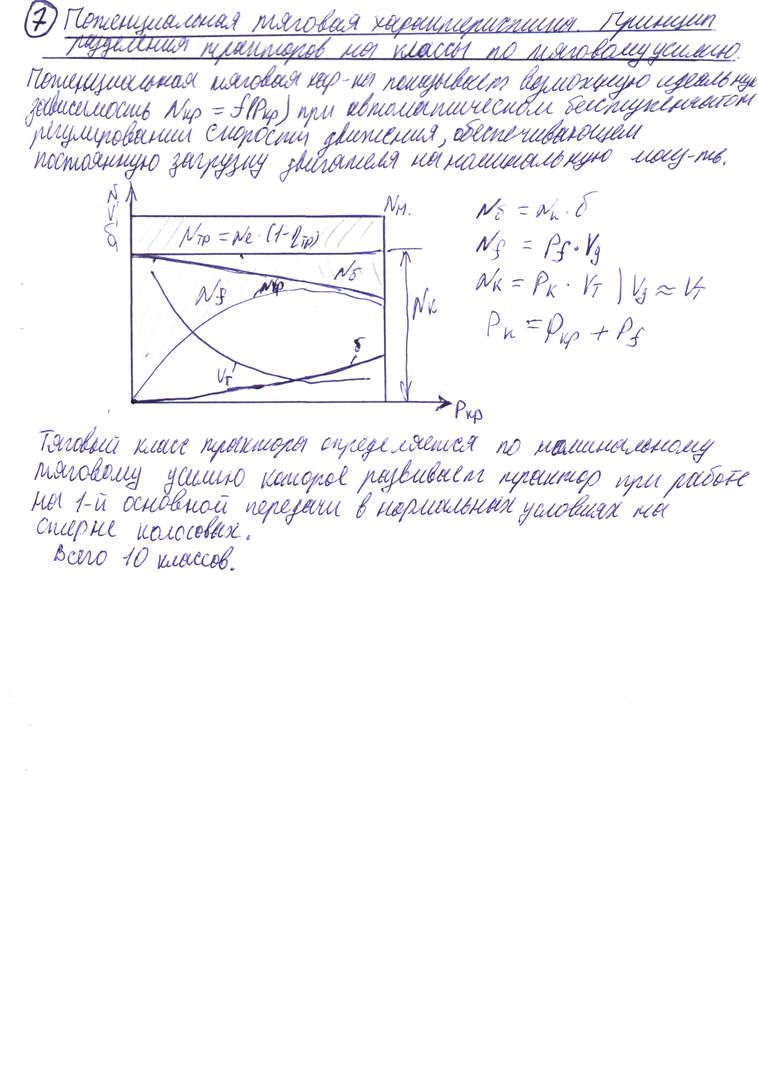 7 Потенциальная тяговая характеристика. Принцип
разделения тракторов на классы по тяговому усилию.
Потенциальная тяговая хар-ка показывает возможную идеальную
зависимость Nкр = f(Pкр) при автоматическом бесступенчатом
регулировании скорости движения, обеспечивающем
постоянную загрузку двигателя на номинальную мощ-ть.
N
V
δ
Nн.
Nтр = Ne · (1-ηтр)
Nδ
Nf
Nкр
Nк
Vт
δ
Pкр
Nδ = Nк · δ
Nf = Pf · Vд
Nк = Pк · Vт | Vд ≈ Vт
Pк = Pкр + Pf
Тяговый класс тракторы определяется по номинальному
тяговому усилию которое развивает трактор при работе
на 1-й основной передачи в нормальных условиях на
стерне колосовых.
Всего 10 классов.